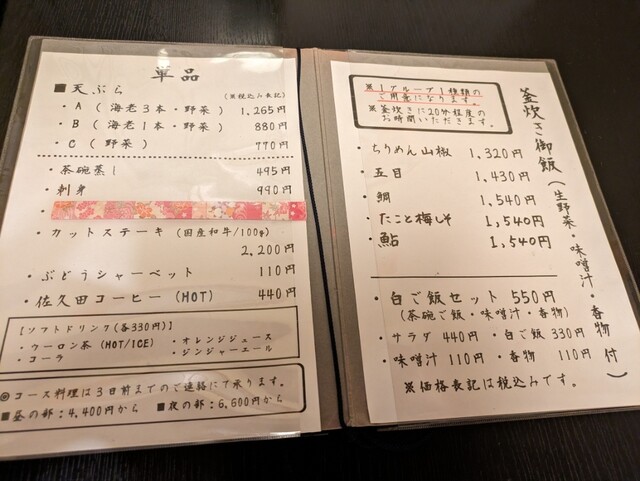 単品
(※税込み表記)
■ 天ぷら
・A (海老3本・野菜) 1,265円
・B (海老1本・野菜) 880円
・C (野菜) 770円
・茶碗蒸し 495円
・刺身 990円
・
・カットステーキ (国産和牛/100g)
2,200円
・ぶどうシャーベット 110円
・佐久田コーヒー (HOT) 440円
【ソフトドリンク(各330円)】
・ウーロン茶 (HOT/ICE) ・オレンジジュース
・コーラ ・ジンジャーエール
◎コース料理は3日前までのご連絡にて承ります。
■昼の部:4,400円から ■夜の部:6,600円から
釜炊き御飯(生野菜・味噌汁・香物 付)
※1グループ1種類の
ご用意になります。
※釜炊きに20分程度の
お時間いただきます。
ちりめん山椒 1,320円
五目 1,430円
鯛 1,540円
たこと梅しそ 1,540円
鮎 1,540円
・白ご飯セット 550円
(茶碗ご飯・味噌汁・香物)
・サラダ 440円 ・白ご飯 330円
・味噌汁 110円 ・香物 110円
※価格表記は税込みです。